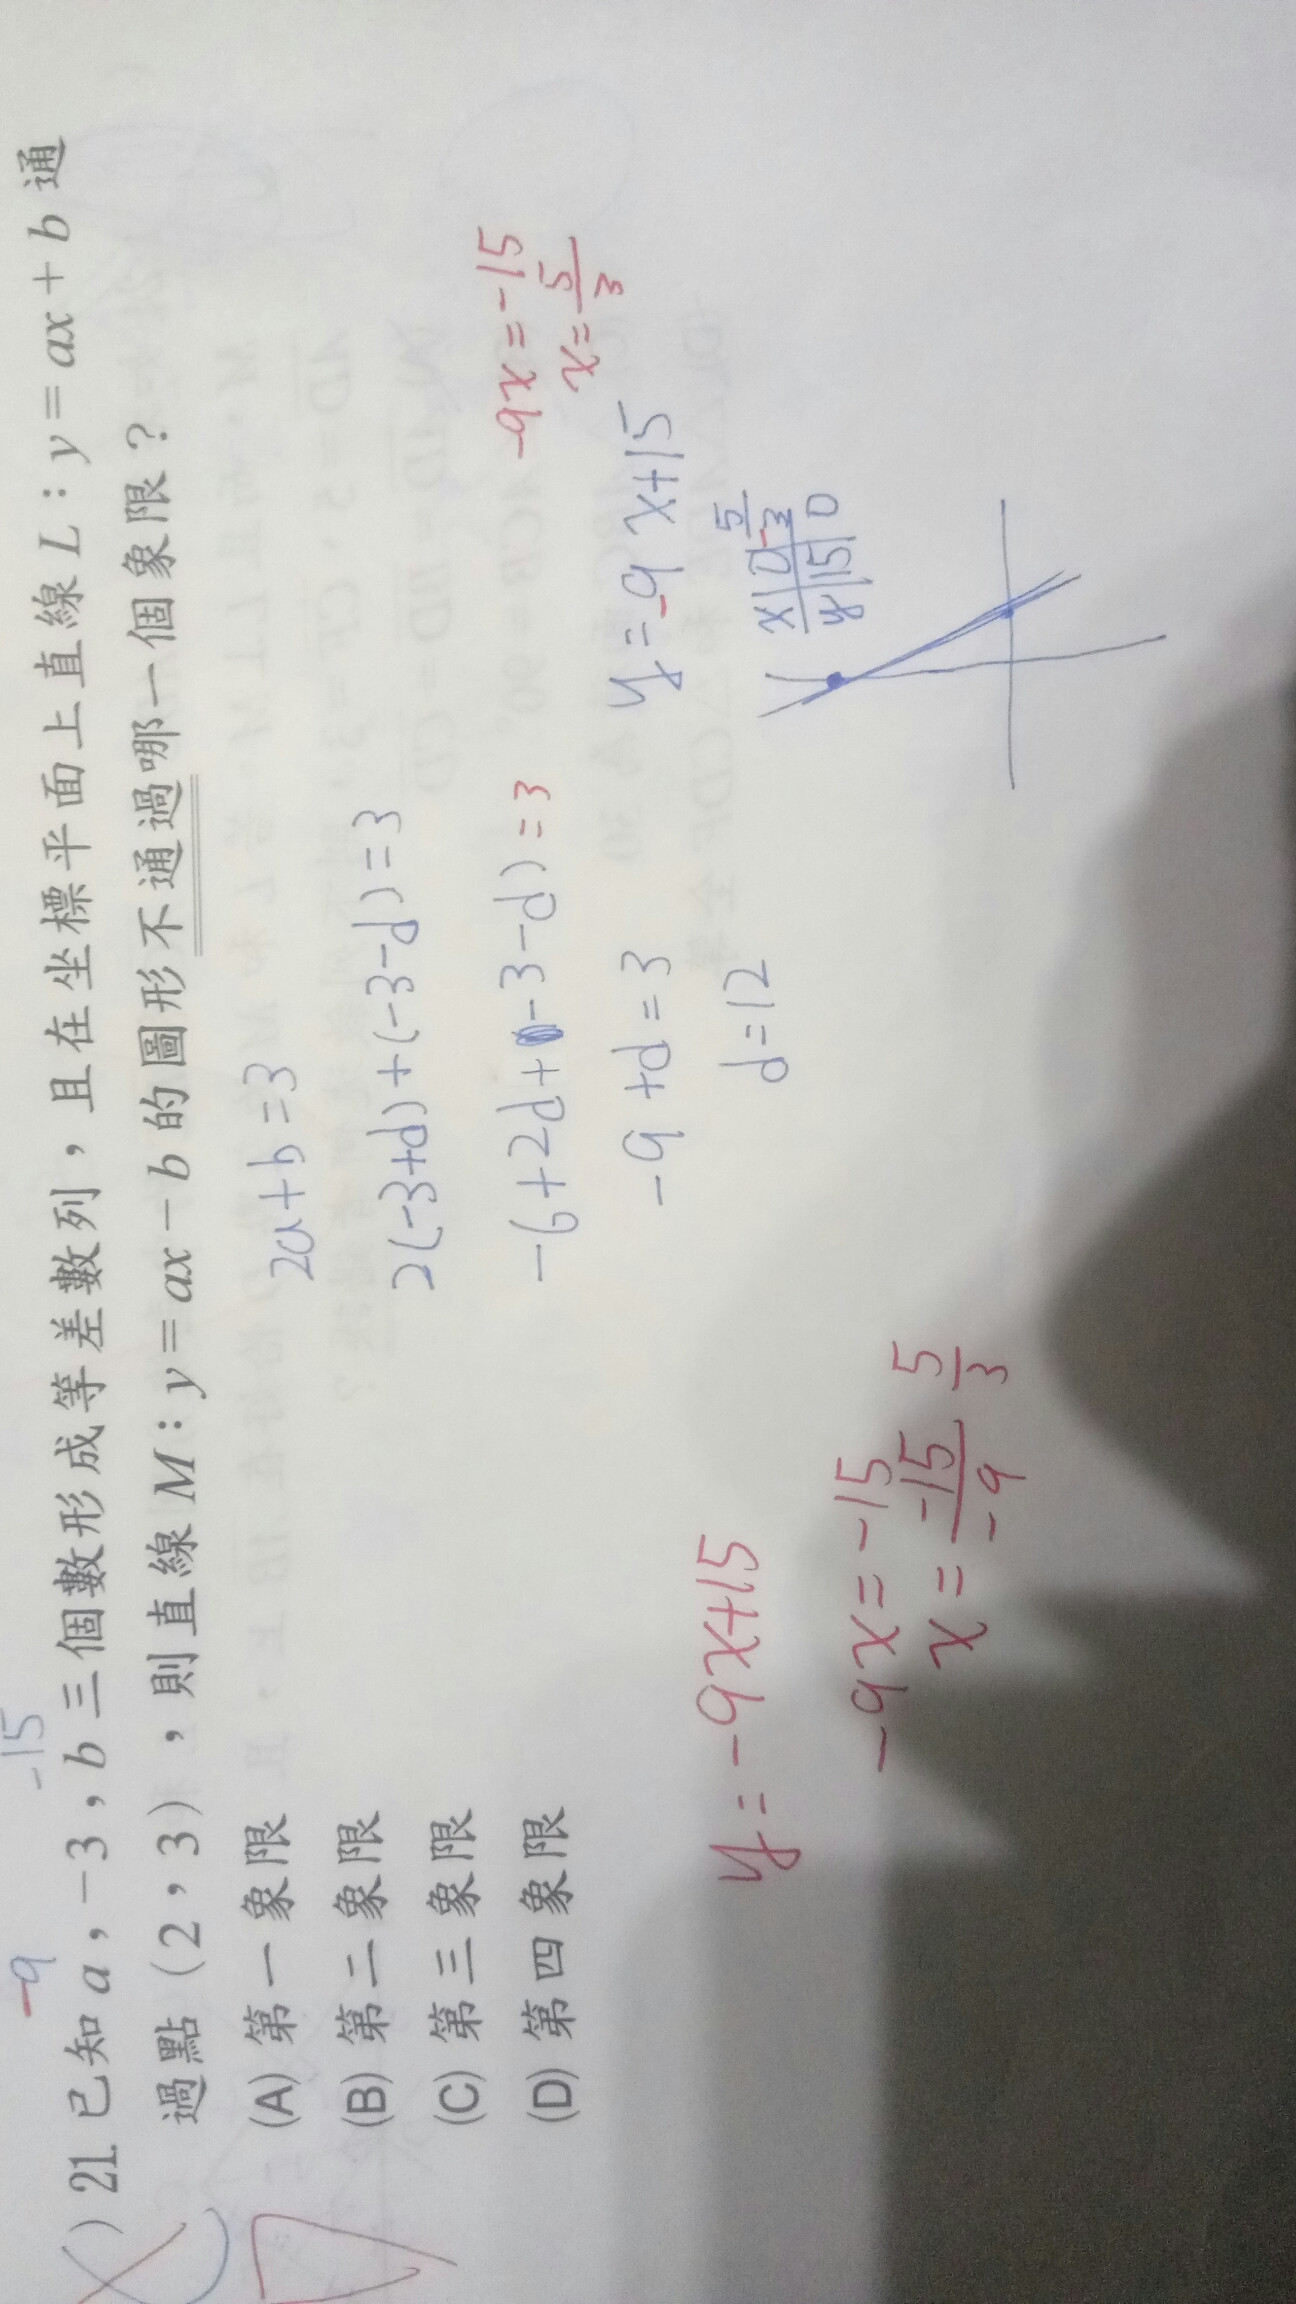 -9 -15
) 21. 已知 a,-3,b 三個數形成等差數列,且在坐標平面上直線 L:y=ax+b 通
過點(2,3),則直線 M:y=ax-b 的圖形不通過哪一個象限?
(A) 第一象限
(B) 第二象限
(C) 第三象限
(D) 第四象限
2a+b=3
2(-3+d)+(-3-d)=3
-6+2d+-3-d)=3
-9+d=3
d=12
-9x=-15
x=5/3
y=-9x+15
x|0|5/3
y|15|0
y=-9x+15
-9x=-15
x=-15/-9 5/3